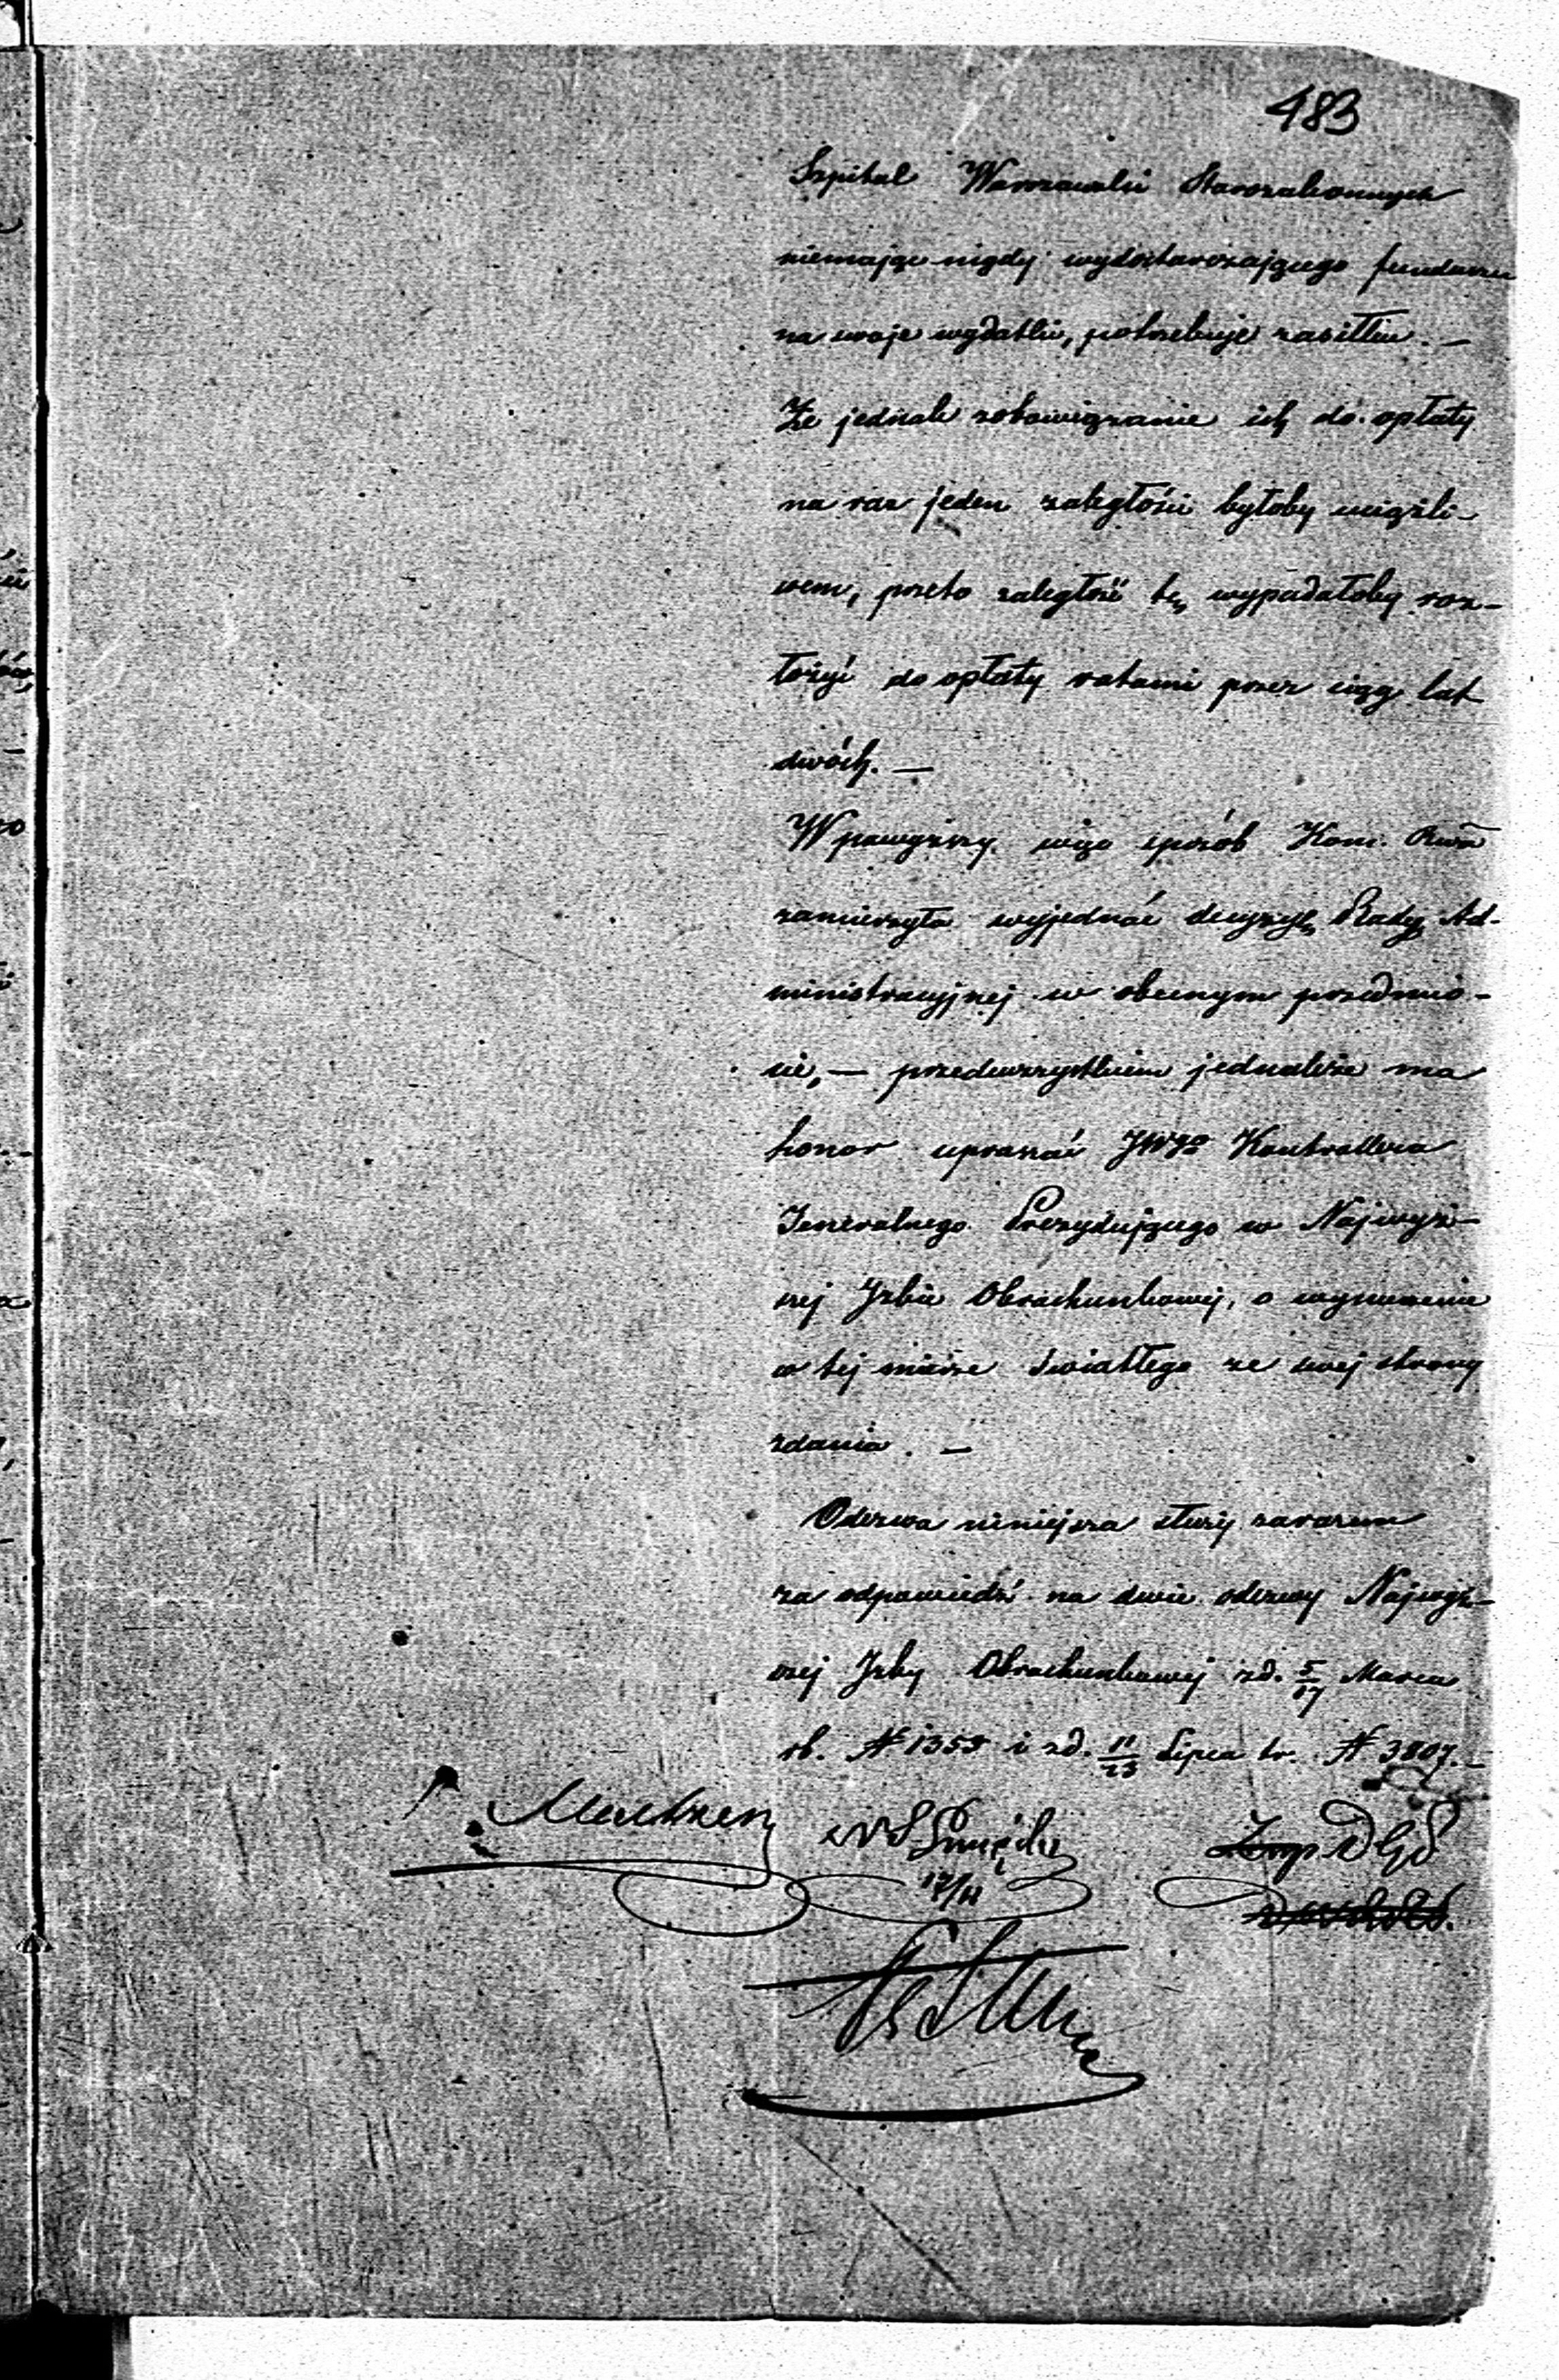 483
Szpital Warszawski Starozakonnych
niemając nigdy wydostarczającego funduszu
na swoje wydatki, potrzebuje zasiłku. —
Że jednak zobowiązanie ich do opłaty
na raz jeden zaległości byłoby uciążli-
wem, przeto zaległość tę wypadałoby roz-
łożyć do opłaty ratami przez ciąg lat
dwóch. —
W powyższy więc sposób Kom. Rwa
zamierzyła wyjednać decyzyę Rady Ad-
ministracyjnej w obecnym przedmio-
cie, — przedewszystkiem jednakże ma
honor upraszać JWgo Kontrollera
Jeneralnego Prezydującego w Najwyż-
szej Izbie Obrachunkowej, o wynurzenie
w tej mierze światłego ze swej strony
zdania. —
Odezwa niniejsza służy zarazem
za odpowiedź na dwie odezwy Najwyż-
szej Izby Obrachunkowej zd. 5/17 Marca
rb. N 1355 i zd. 11/23 Lipca tr. N 3807. —
17/11